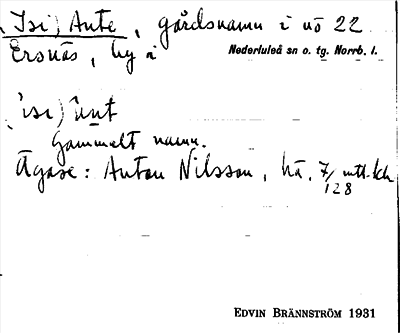 (Isi) Ante, gårdsnamn i nö 22
Ersnäs, by i Nederluleå sn o. tg. Norrb. l.
Gammalt namn.
Ägare: Anton Nilsson, 7/128 mtl.
EDVIN BRÄNNSTRÖM 1931